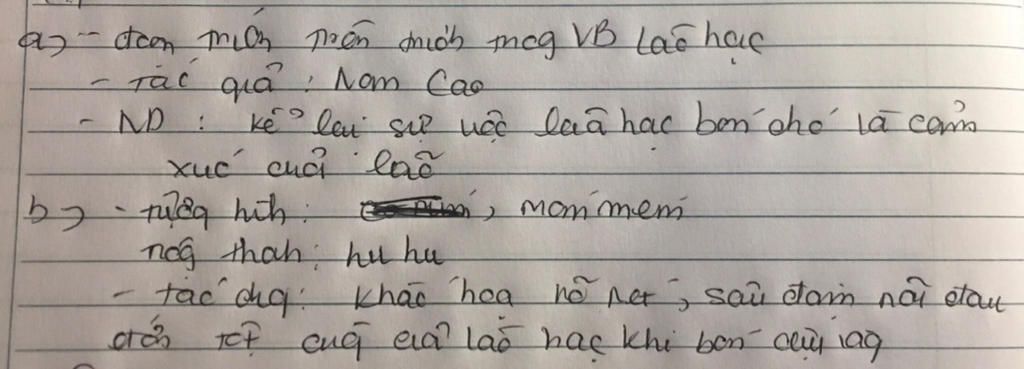 a) - đoạn trích trên trích trong VB Lão hạc
- Tác giả : Nam Cao
- ND : kể lại sự việc lão hạc bán chó và cảm
xúc của lão
b) - tượng hình : móm mém
tượng thanh : hu hu
- tác dụng : khắc hoạ rõ nét, sâu đậm nỗi đau
đớn tột cùng của lão hạc khi bán cậu vàng